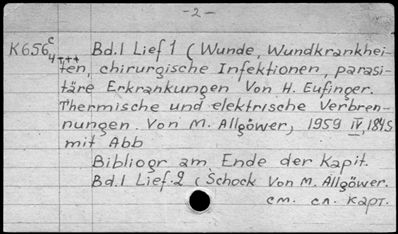 -2-
K656c Bd.1 Lief 1 (Wunde, Wundkrankhei-
4++++ ten, chirurgische Infektionen, parasi-
täre Erkrankungen Von H. Eufinger.
Thermische und elektrische Verbren-
nungen. Von M. Allgöwer, 1959 IV, 184S
mit Abb
Bibliogr am Ende der Kapit.
Bd.1 Lief.2 (Schock Von M. Allgöwer.
см. сл. карт.